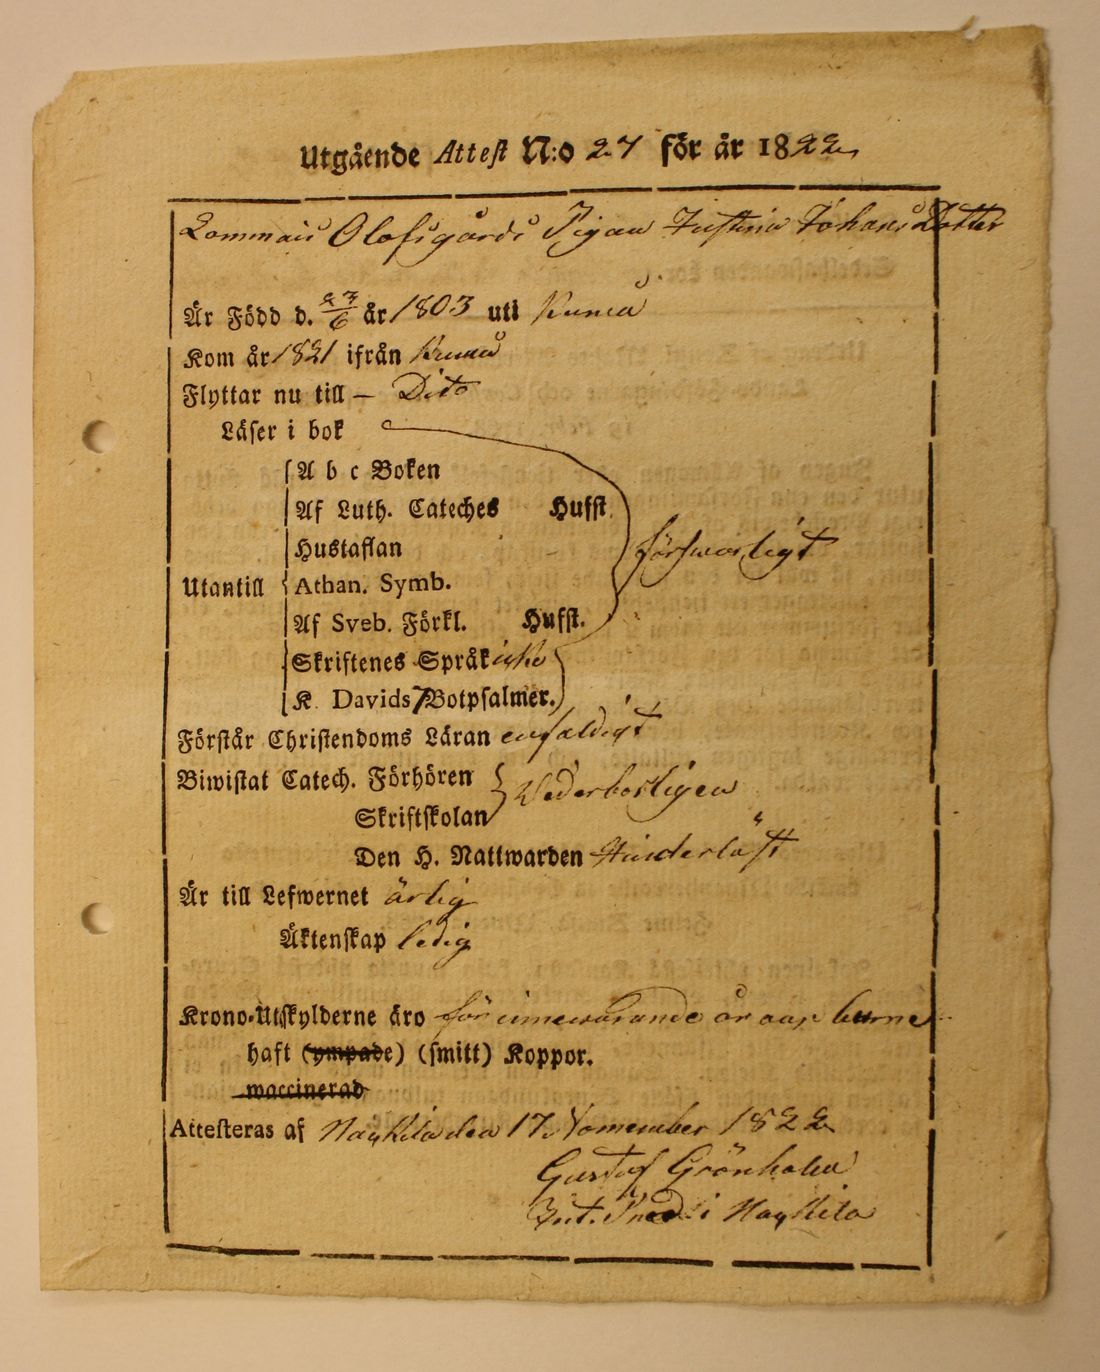 Utgående Attest N:o 27 för år 1822
Lommais Olofsgårds Pigan Justina Johans Dotter
Är Född d. 27/6 år 1803 uti Kumo
Kom år 1821 ifrån Kumo
Flyttar nu till — Dito
Läser i bok
A b c Boken
Af Luth. Cateches Hufst.
Hustaflan
försvarligt
Utantill
Athan. Symb.
Af Sveb. Förkl. Hufst.
Skriftenes Språk icke
K. Davids 7 Botpsalmer.
Förstår Christendoms Läran enfaldigt
Biwistat Catech. Förhören
Skriftskolan
Wederborligen
Den H. Nattwarden
Är till Lefwernet ärlig
Äktenskap ledig
Krono-Utskylderne äro för innewarande år
haft (ympade) (smitt) Koppor.
waccinerad
Attesteras af Nackila den 17 November 1822
Gustaf Grönholm
i Nackila